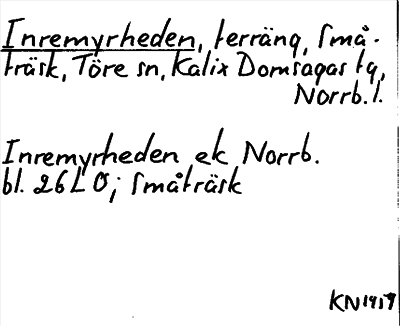 Inremyrheden, terräng, Små-
träsk, Töre sn, Kalix Domsagas tg,
Norrb. l.
Inremyrheden ek Norrb.
bl. 26L O; Småträsk